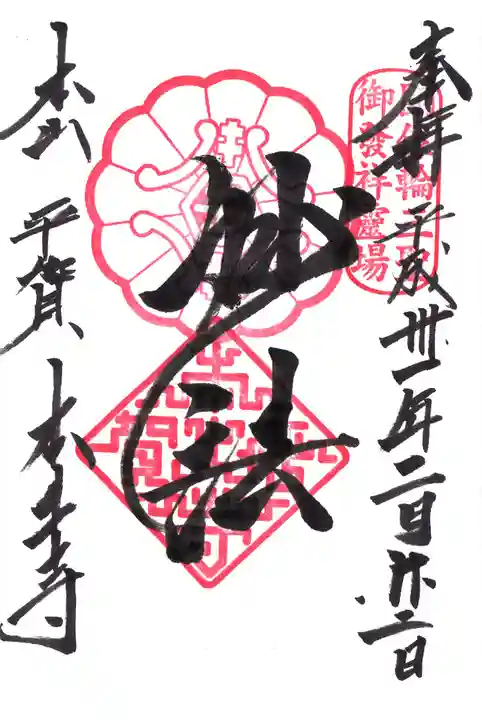 奉拝 平成卅一年二月廿二日
御發祥靈場
妙法
本山 平賀 本土寺